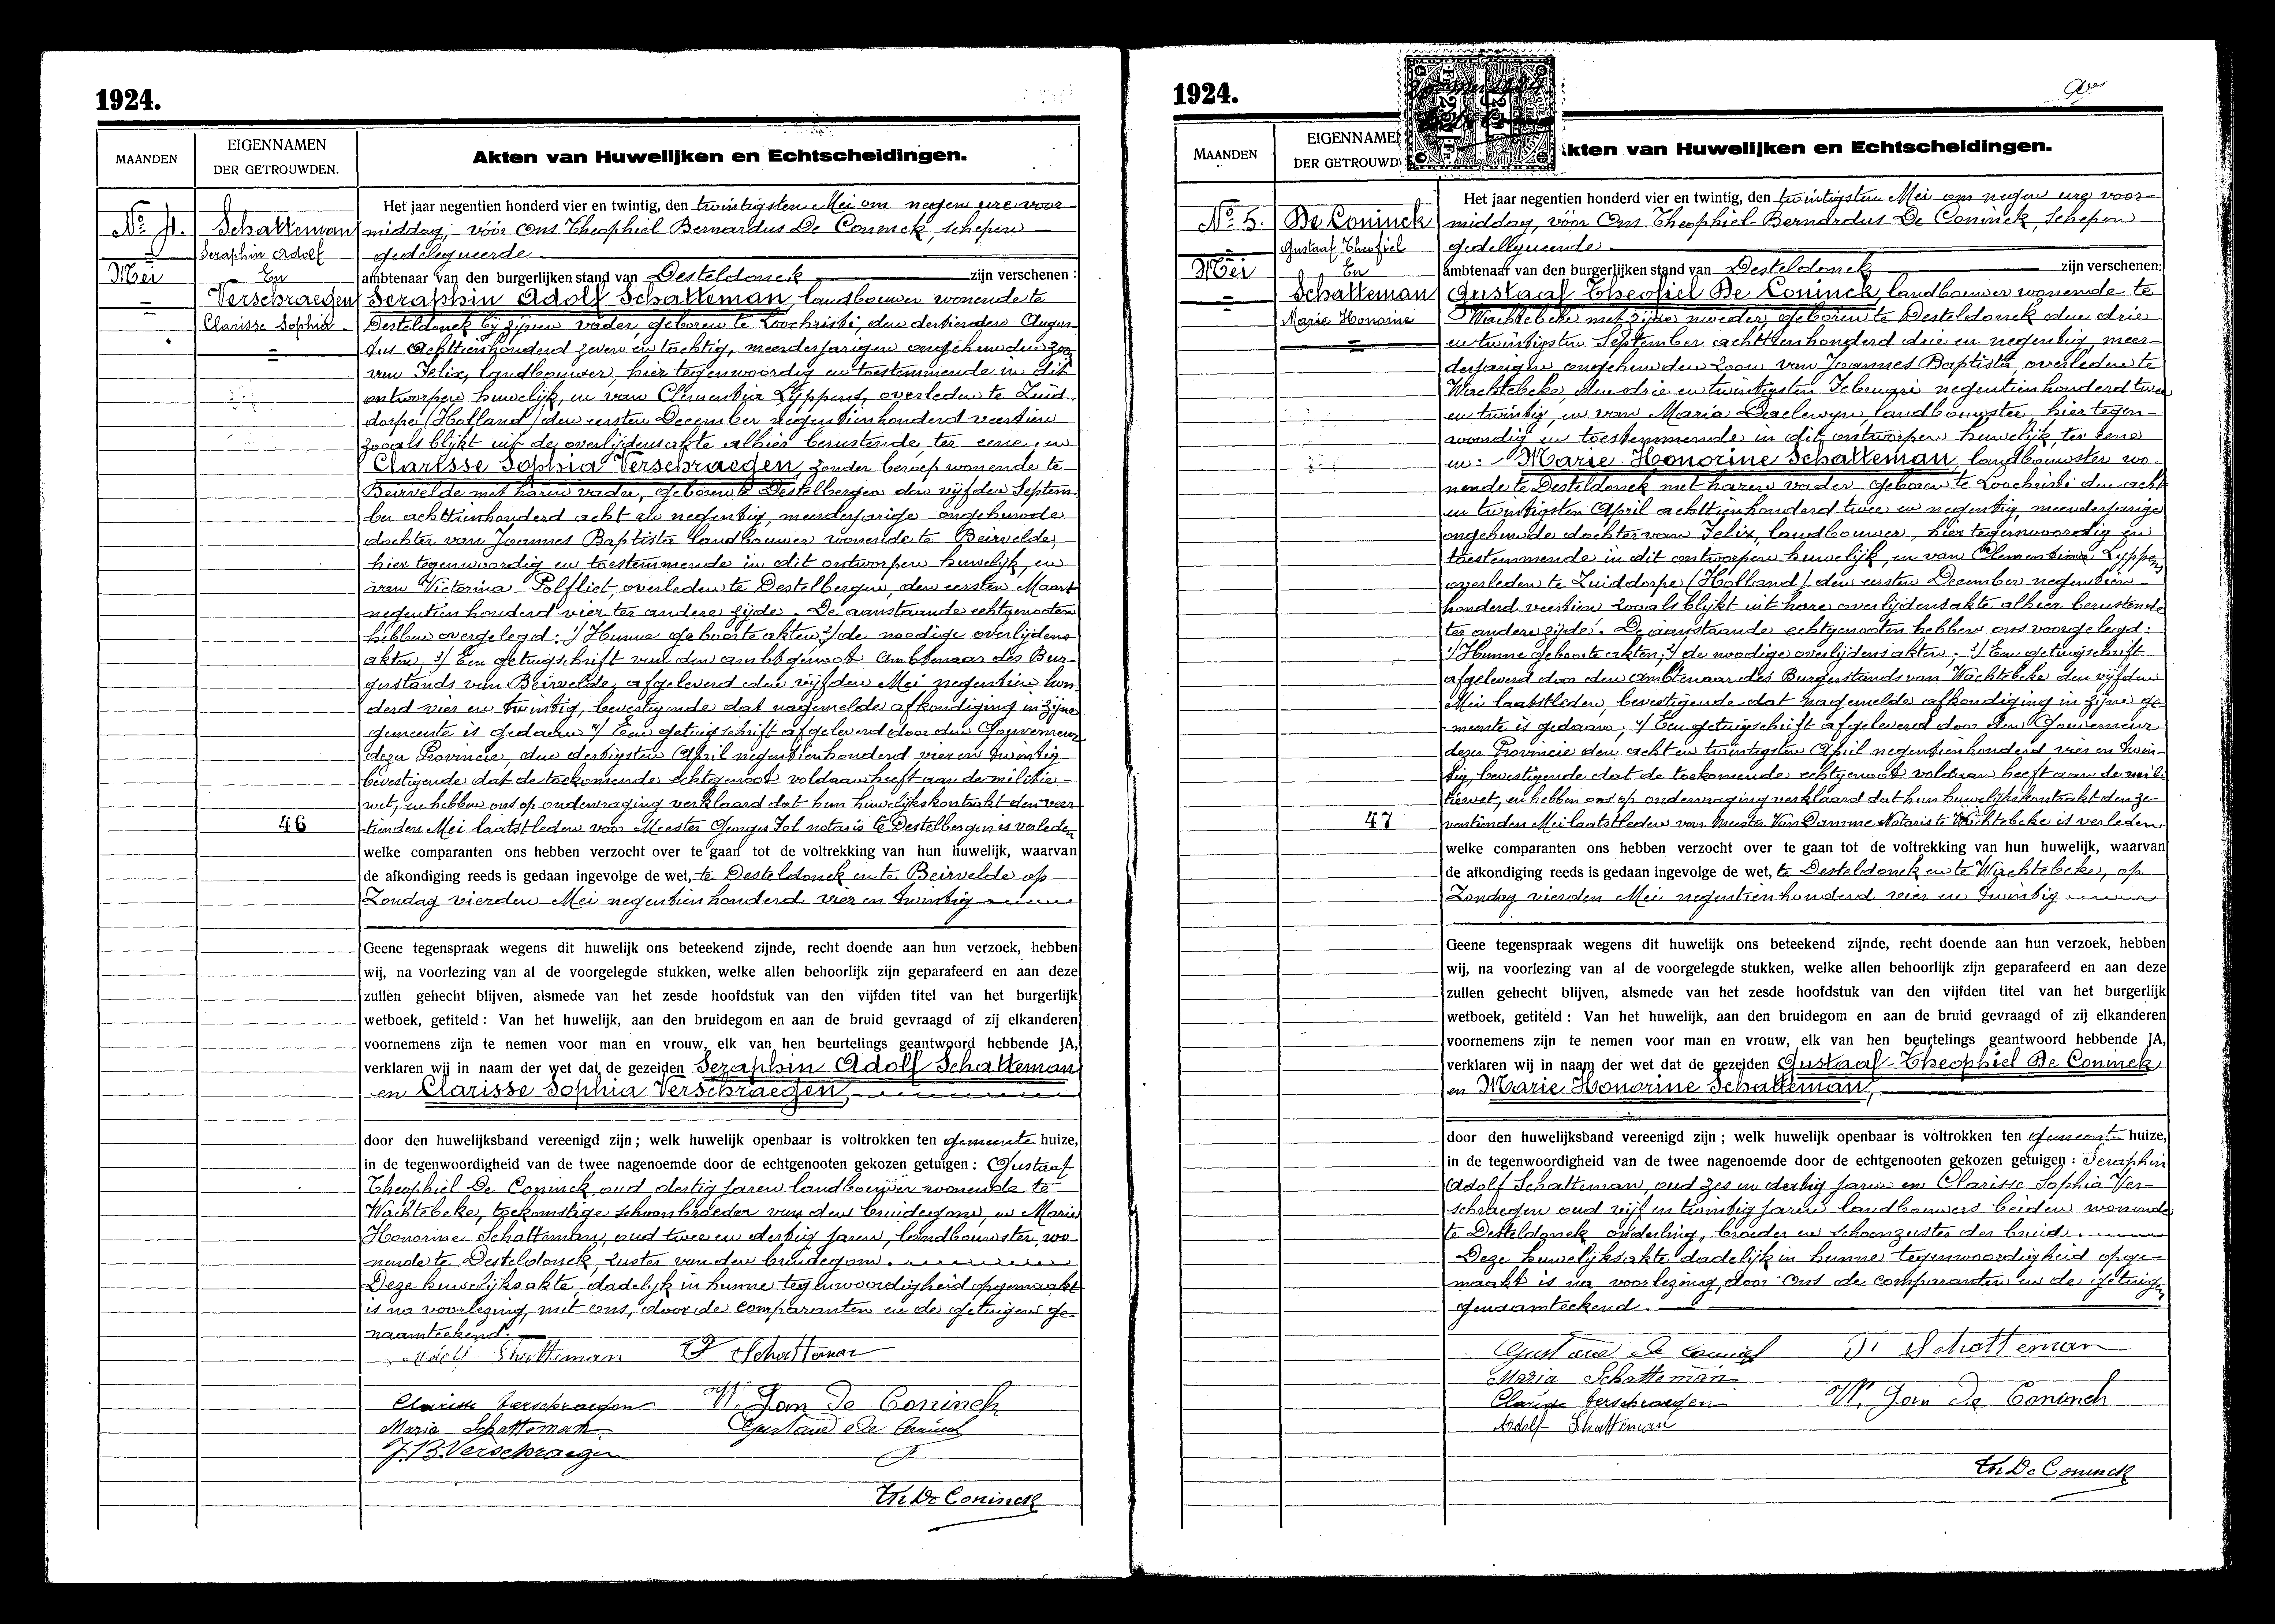 1924.
MAANDEN
EIGENNAMEN
DER GETROUWDEN.
Akten van Huwelijken en Echtscheidingen.
No 4.
Schatteman
Seraphin Adolf
Mei
En
Verschraegen
Clarisse Sophia
46
Het jaar negentien honderd vier en twintig, den twintigsten Mei om negen ure voor-
middag, vóór Ons Theophiel Bernardus De Coninck, schepen
gedelegueerde
ambtenaar van den burgerlijken stand van Desteldonck zijn verschenen:
Seraphin Adolf Schatteman, landbouwer wonende te
Desteldonck bij zijnen vader, geboren te Loochristi, den dertienden Augus-
tus achttienhonderd zeven en tachtig, meerderjarigen ongehuwden zoon
van Felix, landbouwer, hier tegenwoordig en toestemmende in dit
ontworpen huwelijk, en van Clementia Lippens, overleden te Zuid-
dorpe (Holland) den eersten December negentienhonderd veertien
zooals blijkt uit de overlijdensakte alhier berustende, ter eene, en
Clarisse Sophia Verschraegen, zonder beroep wonende te
Beirvelde met haren vader, geboren te Destelbergen den vijfden Septem-
ber achttienhonderd acht en negentig, meerderjarige ongehuwde
dochter van Joannes Baptista landbouwer wonende te Beirvelde,
hier tegenwoordig en toestemmende in dit ontworpen huwelijk, en
van Victorina Polfliet, overleden te Destelbergen, den eersten Maart
negentien honderd vier ter andere zijde. De aanstaande echtgenooten
hebben overgelegd: 1/ Hunne geboorteakten, 2/ de noodige overlijdens-
akten, 3/ Een getuigschrift van den ambtgenoot Ambtenaar des Bur-
gerstands van Beirvelde, afgeleverd den vijfden Mei negentien hon-
derd vier en twintig, bevestigende dat nagemelde afkondiging in zijne
gemeente is gedaan 4/ Een getuigschrift afgeleverd door den Gouverneur
dezer Provincie, den dertigsten April negentienhonderd vier en twintig
bevestigende dat de toekomende echtgenoot voldaan heeft aan de militie-
wet, en hebben ons op ondervraging verklaard dat hun huwelijkskontrakt den veer-
tienden Mei laatstleden voor Meester Georges Fol notaris te Destelbergen is verleden
welke comparanten ons hebben verzocht over te gaan tot de voltrekking van hun huwelijk, waarvan
de afkondiging reeds is gedaan ingevolge de wet, te Desteldonck en te Beirvelde op
Zondag vierden Mei negentien honderd vier en twintig
Geene tegenspraak wegens dit huwelijk ons beteekend zijnde, recht doende aan hun verzoek, hebben
wij, na voorlezing van al de voorgelegde stukken, welke allen behoorlijk zijn geparafeerd en aan deze
zullen gehecht blijven, alsmede van het zesde hoofdstuk van den vijfden titel van het burgerlijk
wetboek, getiteld: Van het huwelijk, aan den bruidegom en aan de bruid gevraagd of zij elkanderen
voornemens zijn te nemen voor man en vrouw, elk van hen beurtelings geantwoord hebbende JA,
verklaren wij in naam der wet dat de gezeiden Seraphin Adolf Schatteman
en Clarisse Sophia Verschraegen,
door den huwelijksband vereenigd zijn; welk huwelijk openbaar is voltrokken ten gemeente huize,
in de tegenwoordigheid van de twee nagenoemde door de echtgenooten gekozen getuigen: Gustaaf
Theophiel De Coninck oud dertig jaren landbouwer wonende te
Wachtebeke, toekomstige schoonbroeder van den bruidegom, en Marie
Honorine Schatteman, oud twee en dertig jaren, landbouwster, wo-
nende te Desteldonck, zuster van den bruidegom.
Deze huwelijksakte, dadelijk in hunne tegenwoordigheid opgemaakt
is na voorlezing, met ons, door de comparanten en de getuigen ge-
naamteekend.
Adolf Schatteman F Schatteman
Clarisse Verschraegen W. Jan De Coninck
Maria Schatteman Gustave De Coninck
J.B. Verschraegen
Th De Coninck
1924.
MAANDEN
EIGENNAMEN
DER GETROUWD
Akten van Huwelijken en Echtscheidingen.
No 5.
De Coninck
Gustaaf Theofiel
Mei
En
Schatteman
Marie Honorine
47
Het jaar negentien honderd vier en twintig, den twintigsten Mei om negen ure voor-
middag, vóór Ons Theophiel Bernardus De Coninck, schepen
gedelegueerde
ambtenaar van den burgerlijken stand van Desteldonck zijn verschenen:
Gustaaf Theofiel De Coninck, landbouwer wonende te
Wachtebeke met zijne moeder, geboren te Desteldonck den drie
en twintigsten September achttienhonderd drie en negentig, meer-
derjarigen ongehuwden zoon van Joannes Baptista, overleden te
Wachtebeke, den drie en twintigsten Februari negentienhonderd twee
en twintig, en van Maria Baelewyn, landbouwster, hier tegen-
woordig en toestemmende in dit ontworpen huwelijk, ter eene
en: Marie Honorine Schatteman, landbouwster wo-
nende te Desteldonck met haren vader geboren te Loochristi den acht
en twintigsten April achttienhonderd twee en negentig, meerderjarige
ongehuwde dochter van Felix, landbouwer, hier tegenwoordig en
toestemmende in dit ontworpen huwelijk, en van Clementina Lyppens
overleden te Zuiddorpe (Holland) den eersten December negentien
honderd veertien zooals blijkt uit hare overlijdensakte alhier berustende
ter andere zijde. De aanstaande echtgenooten hebben ons voorgelegd:
1/ Hunne geboorteakten; 2/ de noodige overlijdensakten. 3/ Een getuigschrift
afgeleverd door den Ambtenaar des Burgerstands van Wachtebeke den vijfden
Mei laatstleden, bevestigende dat nagemelde afkondiging in zijne ge-
meente is gedaan; 4/ Een getuigschrift afgeleverd door den Gouverneur
dezer Provincie den acht en twintigsten April negentienhonderd vier en twin-
tig, bevestigende dat de toekomende echtgenoot voldaan heeft aan de mili-
tiewet, en hebben ons op ondervraging verklaard dat hun huwelijkskontrakt den ze-
ventienden Mei laatstleden voor Meester Van Damme Notaris te Wachtebeke is verleden
welke comparanten ons hebben verzocht over te gaan tot de voltrekking van hun huwelijk, waarvan
de afkondiging reeds is gedaan ingevolge de wet, te Desteldonck en te Wachtebeke, op
Zondag vierden Mei negentienhonderd vier en twintig
Geene tegenspraak wegens dit huwelijk ons beteekend zijnde, recht doende aan hun verzoek, hebben
wij, na voorlezing van al de voorgelegde stukken, welke allen behoorlijk zijn geparafeerd en aan deze
zullen gehecht blijven, alsmede van het zesde hoofdstuk van den vijfden titel van het burgerlijk
wetboek, getiteld: Van het huwelijk, aan den bruidegom en aan de bruid gevraagd of zij elkanderen
voornemens zijn te nemen voor man en vrouw, elk van hen beurtelings geantwoord hebbende JA,
verklaren wij in naam der wet dat de gezeiden Gustaaf-Theophiel De Coninck
en Marie Honorine Schatteman,
door den huwelijksband vereenigd zijn; welk huwelijk openbaar is voltrokken ten gemeente huize,
in de tegenwoordigheid van de twee nagenoemde door de echtgenooten gekozen getuigen: Seraphin
Adolf Schatteman, oud zes en dertig jaren en Clarisse Sophia Ver-
schraegen oud vijf en twintig jaren landbouwers beiden wonende
te Desteldonck onderling, broeder en schoonzuster der bruid.
Deze huwelijksakte dadelijk in hunne tegenwoordigheid opge-
maakt is na voorlezing, door Ons de comparanten en de getuigen
genaamteekend.
Gustave De Coninck F. Schatteman
Maria Schatteman
Clarisse Verschraegen W. Jan De Coninck
Adolf Schatteman
Th De Coninck